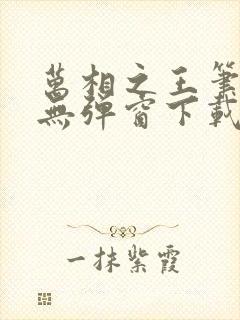 萬相之王筆
無彈窗下載
一抹紫霞